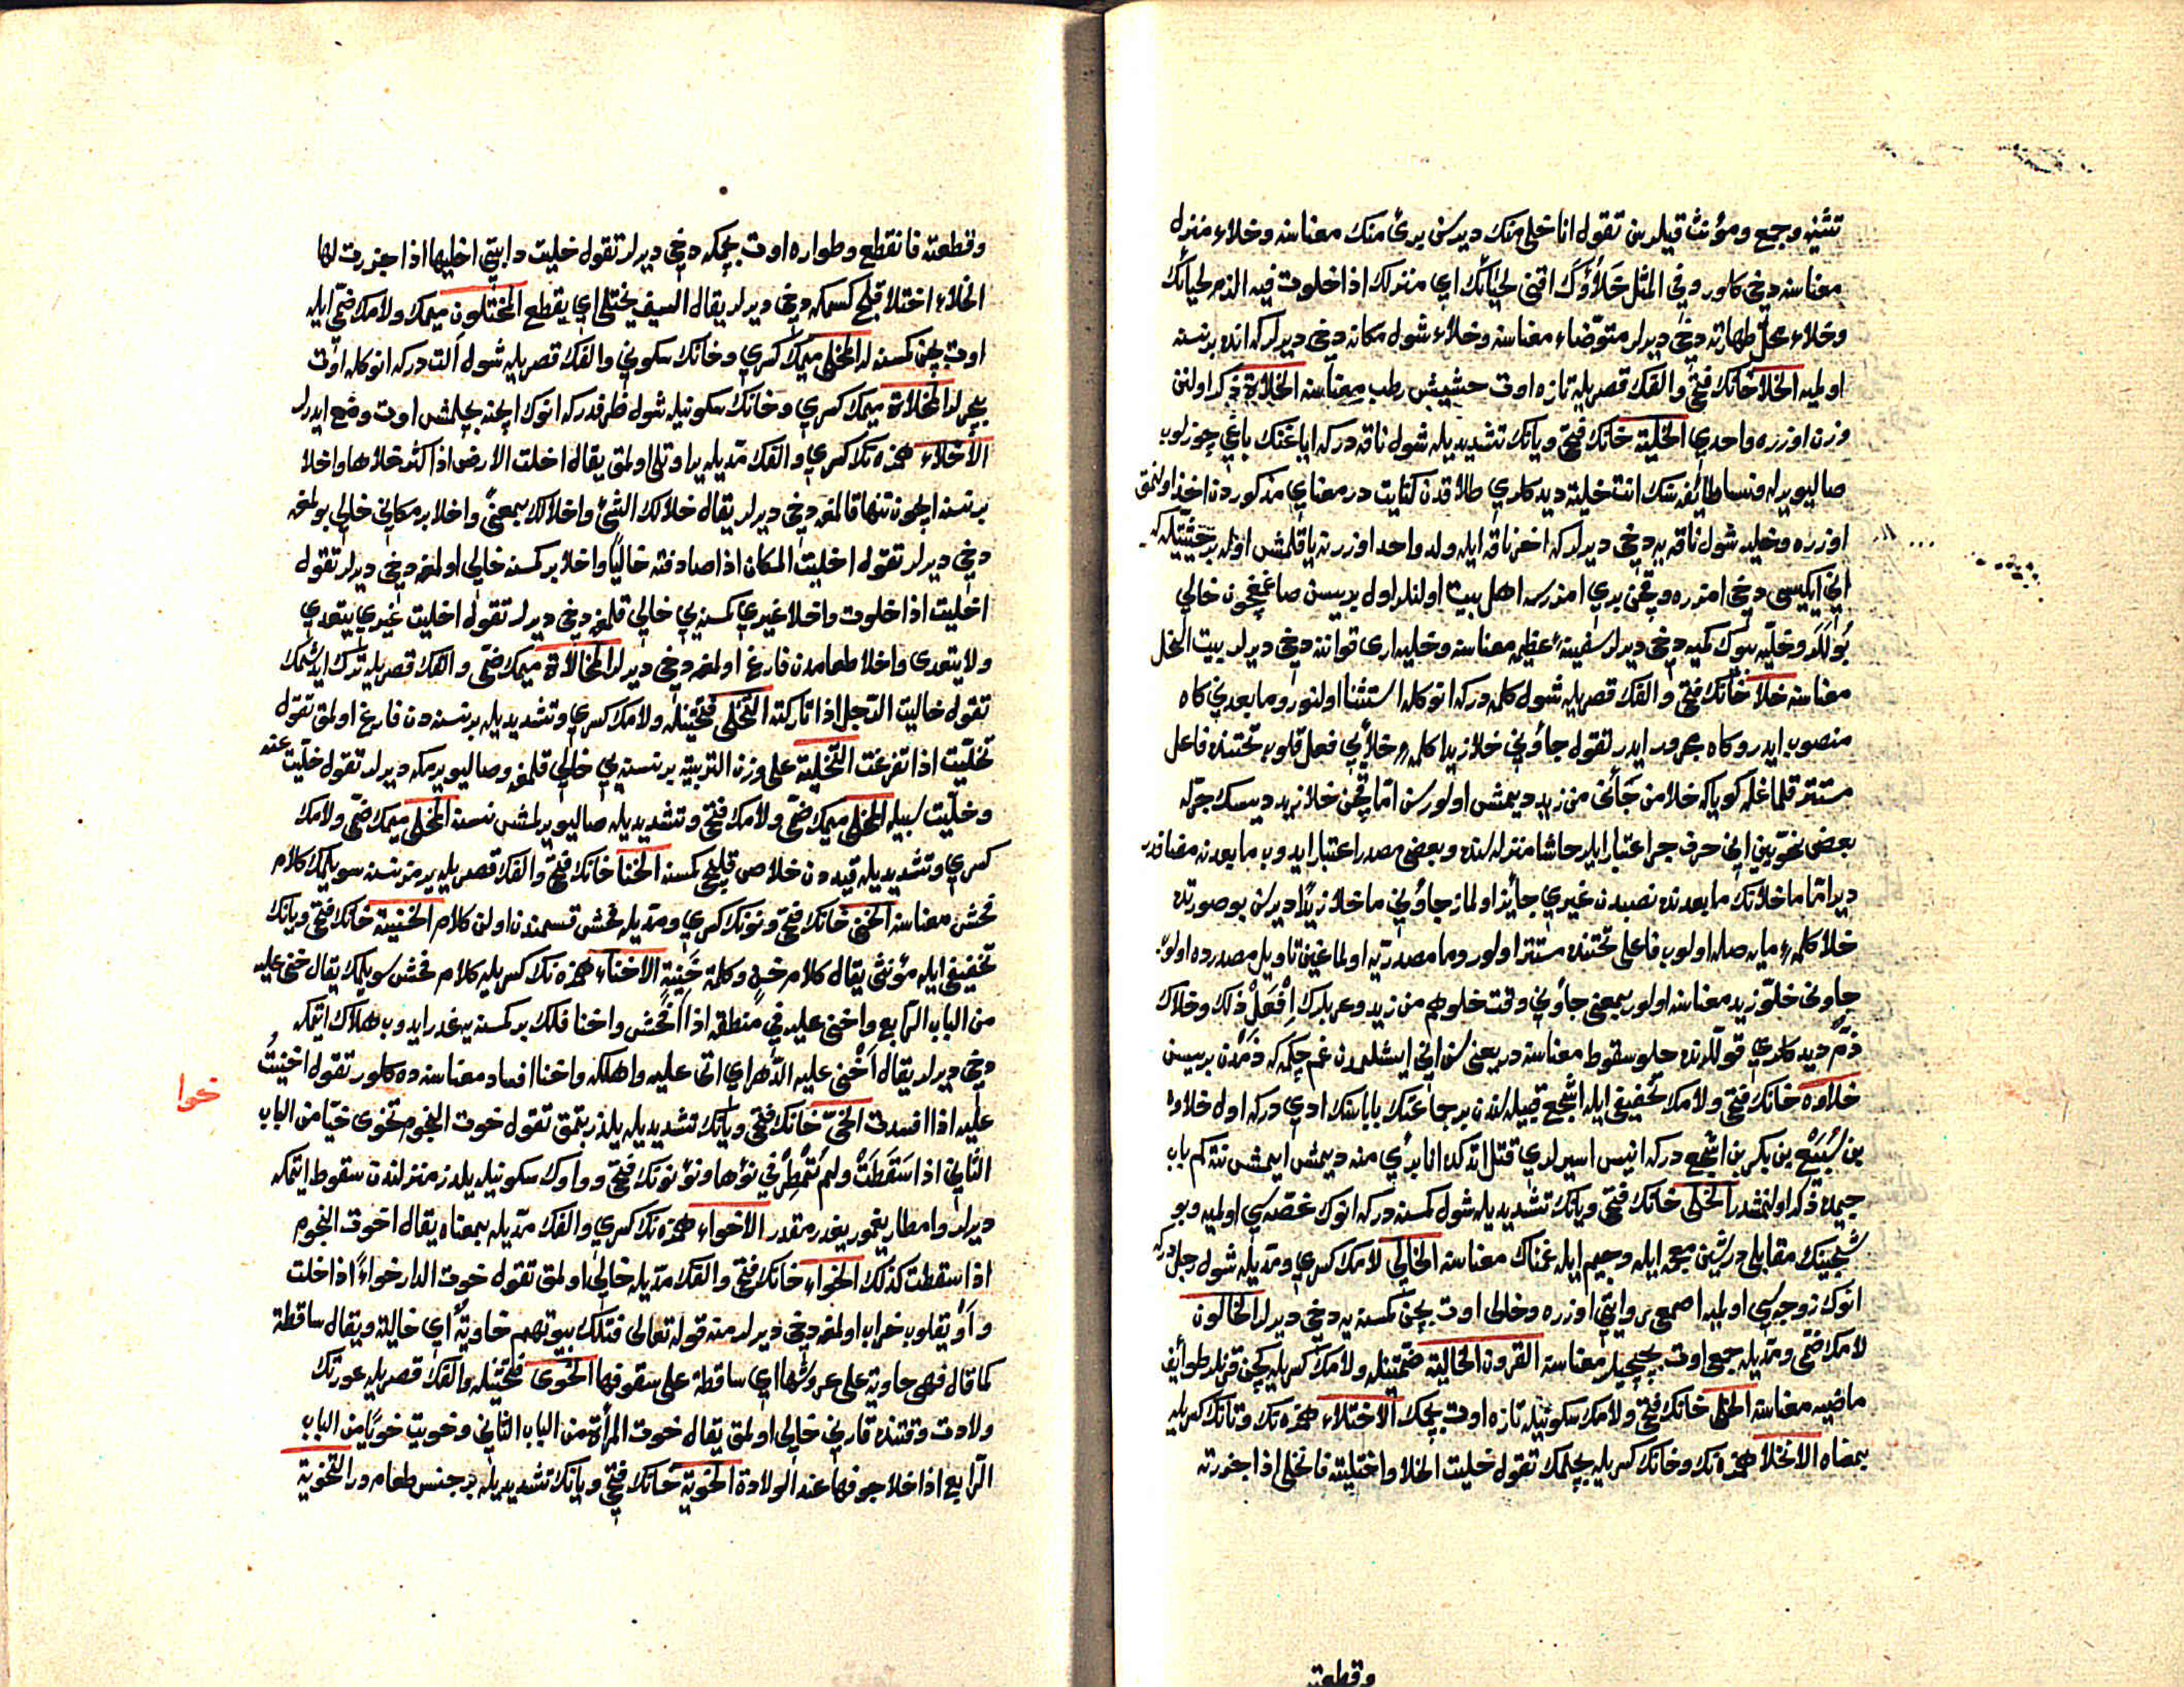 تثنيه وجمع ومؤنث قيلدين تقول انا خلى منك ديرسن برئ منك معناسنه وخلاء منزل
معناسنه دخى كلور وفي المثل خَلَاؤُكَ اقنى لحيائك اي منزلك اذا خلوت فيه الزم لحيائك
وخلاء محل طهارته دخى ديرلر متوضاء معناسنه وخلاء شول مكانه دخى ديرلر كه انده برنسنه
اولميه الخلا خانك فتحى والفك قصريله تازه اوت حشيش رطب معناسنه الخلاة ذكر اولنن
وزن اوزره واحدي الخلية خانك فتحى ويانك تشديديله شول ناقه دركه اياغنك باغى چوزلوب
صاليويريله ونسا طائفه سنك انت خلية ديدكلري طلاقدن كنايت در معناي مذكوردن اخذ اولنمق
اوزره وخليه شول ناقه يه دخى ديرلر كه اخر ناقه ايله ولد واحد اوزرينه ياقلمش اوله بر حيثيتله كه
ايكيسى دخى امزره وقچن بري امزرسه اهل بيت اولنلر اول بريسن صاغمغچون خالي
بُولَلَر وخليّه بيوك كميه دخى ديرلر سفينهٔ عظيمه معناسنه وخليه اري قواننه دخى ديرلر بيت النحل
معناسنه خلا خانك فتحى والفك قصريله شول كلمه دركه انوكله استثنا اولنور وما بعدين كاه
منصوب ايدر وكاه مجرور ايدر تقول جاؤني خلا زيدا كلمهٔ خلايى فعل قلوب تحتنده فاعل
مستتر قلماغله كوياكه خلا من جَأَنى من زيد ديمش اولورسن امّا قچن خلا زيد ديسك جرّله
بعض نحويين انى حرف جر اعتبار ايلر حاشا منزله سنده وبعضى مصدر اعتبار ايدوب ما بعدنه مضافدر
دير امّا ما خلانك ما بعدنده نصبدن غيري جايز اولماز جاؤني ما خلا زيدًا ديرسن بو صورتده
خلا كلمهٔ مايه صله اولوب فاعلى تحتنده مستتر اولور وما مصدريّه اولماغين تاويل مصدرده اولوب
جاؤنى خلوّ زيد معناسنه اولور بمعنى جاؤني وقت خلوهم من زيد وعربلرك اِفْعَلْ ذلك وخلاك
ذمّ ديدكلري قوللرنده خلو سقوط معناسنه در يعنى سن انى ايشلمدن غم چكمه كه ذمّدن بريسن
خلاوه خانك فتحى ولامك تخفيفى ايله اشجع قبيله سندن بر جماعتك باباسنك ادي دركه اول خلاوه
بن سُبَيْع بن بكر بن اشجع دركه انيس اسيرلدي قتل اتدكده انا برئ منه ديمش ايمش نته كم باب
جيمده ذكر اولنمشدر الخلى خانك فتحى ويانك تشديديله شول كمسنه دركه انوك غصّه سي اولميه وبو
شجينك مقابلى در شين معجمه ايله وجيم ايله غمناك معناسنه الخالي لامك كسري ومدّيله شول رجل دركه
انوك زوجه سي اولميه اصمعى روايتى اوزره وخالى اوت بچن كمسنه يه دخى ديرلر الخالون
لامك ضمّى ومدّيله جمعى اوت بچيجيلر معناسنه القرون الخالية ضمّتينله ولامك كسريله كچن قرنلر طوايف
ماضيه معناسنه الخلى خانك فتحى ولامك سكونيله تازه اوت بچمك الاختلاء همزه نك وتانك كسريله
بمعناه الانخلا همزه نك وخانك كسريله بچلمك تقول خليت الخلا واختليته فانخلى اذا جزرته
وقطعته
وقطعته فانقطع وطواره اوت بچمكه دخى ديرلر تقول خليت دابتى اخليها اذا جزرت لها
الخلاء اختلا قلج كسمكه دخى ديرلر يقال السيف يختلى اي يقطع المختلون ميمك ولامك ضمّى ايله
اوت بچن كمسنه لر المخلى ميمك كسري وخانك سكوني والفك قصريله شول آلت دركه انوكله اوت
بچرلر المخلاة ميمك كسري وخانك سكونيله شول ظرفدركه انوك ايچنه بچلمش اوت وضع ايدرلر
الاخلاء همزه نك كسري والفك مدّيله ير اوتلى اولمق يقال اخلت الارض اذا كثر خلاها واخلا
برنسنه ايچون تنها قالمغه دخى ديرلر يقال خلا لك الشئ واخلا لك بمعنًى واخلا بر مكاني خالي بولمغه
دخى ديرلر تقول اخليت المكان اذا صادفته خاليًا واخلا بر كمسنه خالي اولمغه دخى ديرلر تقول
اخليت اذا خلوت واخلا غيري كمسنه يي خالي قلمغه دخى ديرلر تقول اخليت غيري يتعدي
ولا يتعدى واخلا طعامدن فارغ اولمغه دخى ديرلر المخالاة ميمك ضمّى والفك قصريله ترك ايدشمك
تقول خاليت الرّجل اذا تاركته التخلّى فتحتينله ولامك كسري وتشديديله برنسنه دن فارغ اولمق تقول
تخلّيت اذا تفرغت التخلية على وزن التربية برنسنه يي خالي قلمغه وصاليويرمكه ديرلر تقول خلّيت عنه
وخلّيت سبيله المخلّى ميمك ضمّى ولامك فتحى وتشديديله صاليويرلمش نسنه المخلّى ميمك ضمّى ولامك
كسري وتشديديله قيددن خلاص قليجى كمسنه الخنا خانك فتحى والفك قصريله يرمز نسنه سويلمك كلام
فحش معناسنه الخنى خانك فتحى ونونك كسري ومدّيله فحش قسمندن اولن كلام الخنية خانك فتحى ويانك
تخفيفى ايله مؤنثى يقال كلام خنٍ وكلمة خَنِيَةٍ الاخناء همزه نك كسريله كلام فحش سويلمك يقال خنى عليه
من الباب الرّابع واخنى عليه في منطقه اذا افحش واخنا فلك بر كمسنه يه غدر ايدوب هلاك اتمكه
دخى ديرلر يقال اَخْنى عليه الدّهر اي اتى عليه واهلكه واخنا افساد معناسنه ده كلور تقول اخنيتُ
عليه اذا افسدت الخىّ خانك فتحى ويانك تشديديله يلدز بتمق تقول خوت النجوم تخوى خيّا من الباب
خوا
الثّاني اذا سَقَطَتْ ولم تُمْطِرْ في نوئها ونَوْ نونك فتحى وواوك سكونيله يلدز منزلندن سقوط اتمكه
ديرلر وامطار يغمور يغدرمقدر الاخواء همزه نك كسري والفك مدّيله بمعناه يقال اخوت النجوم
اذا سقطت كذلك الخواء خانك فتحى والفك مدّيله خالي اولمق تقول خوت الدار خواءً اذا خلت
واو يقلوب خراب اولمغه دخى ديرلر منه قوله تعالى فتلك بيوتهم خاوية اي خالية ويقال ساقطة
كما قال فهى خاوية على عروشها اي ساقطة على سقوفها الخوى فتحتينله والفك قصريله عورتك
ولادت وقتنده قارني خالي اولمق يقال خوت المرأة من الباب الثاني وخويت خوًى من الباب
الرّابع اذا خلا جوفها عند الولادة الخوية خانك فتحى ويانك تشديديله بر جنس طعامدر التخوية